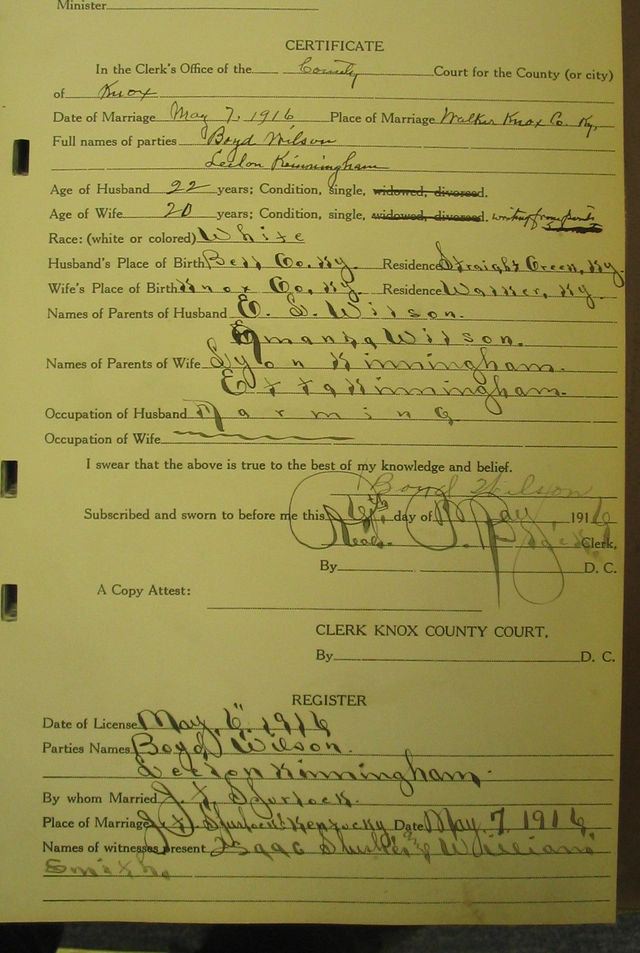 Minister
CERTIFICATE
In the Clerk's Office of the County Court for the County (or city)
of Knox
Date of Marriage May 7, 1916 Place of Marriage Walker Knox Co. Ky,
Full names of parties Boyd Wilson
Leelon Kinningham
Age of Husband 22 years; Condition, single, widowed, divorced.
Age of Wife 20 years; Condition, single, widowed, divorced. writing from
Race: (white or colored) White
Husband's Place of Birth Bell Co. Ky. Residence Straight Creek, Ky.
Wife's Place of Birth Knox Co. Ky. Residence Walker, Ky.
Names of Parents of Husband E. S. Wilson.
Amanda Wilson.
Names of Parents of Wife Kinningham.
Etta Kinningham.
Occupation of Husband Farming
Occupation of Wife
I swear that the above is true to the best of my knowledge and belief.
Boyd Wilson
Subscribed and sworn to before me this 6th. day of May, 1916
Read P. Black Clerk,
By D. C.
A Copy Attest:
CLERK KNOX COUNTY COURT.
By D. C.
REGISTER
Date of License May, 6", 1916
Parties Names Boyd Wilson.
Leelon Kinningham.
By whom Married J. H. Spurlock.
Place of Marriage J. H. Spurlock Kentucky Date May. 7, 1916
Names of witnesses present Isaac & William
Smith.